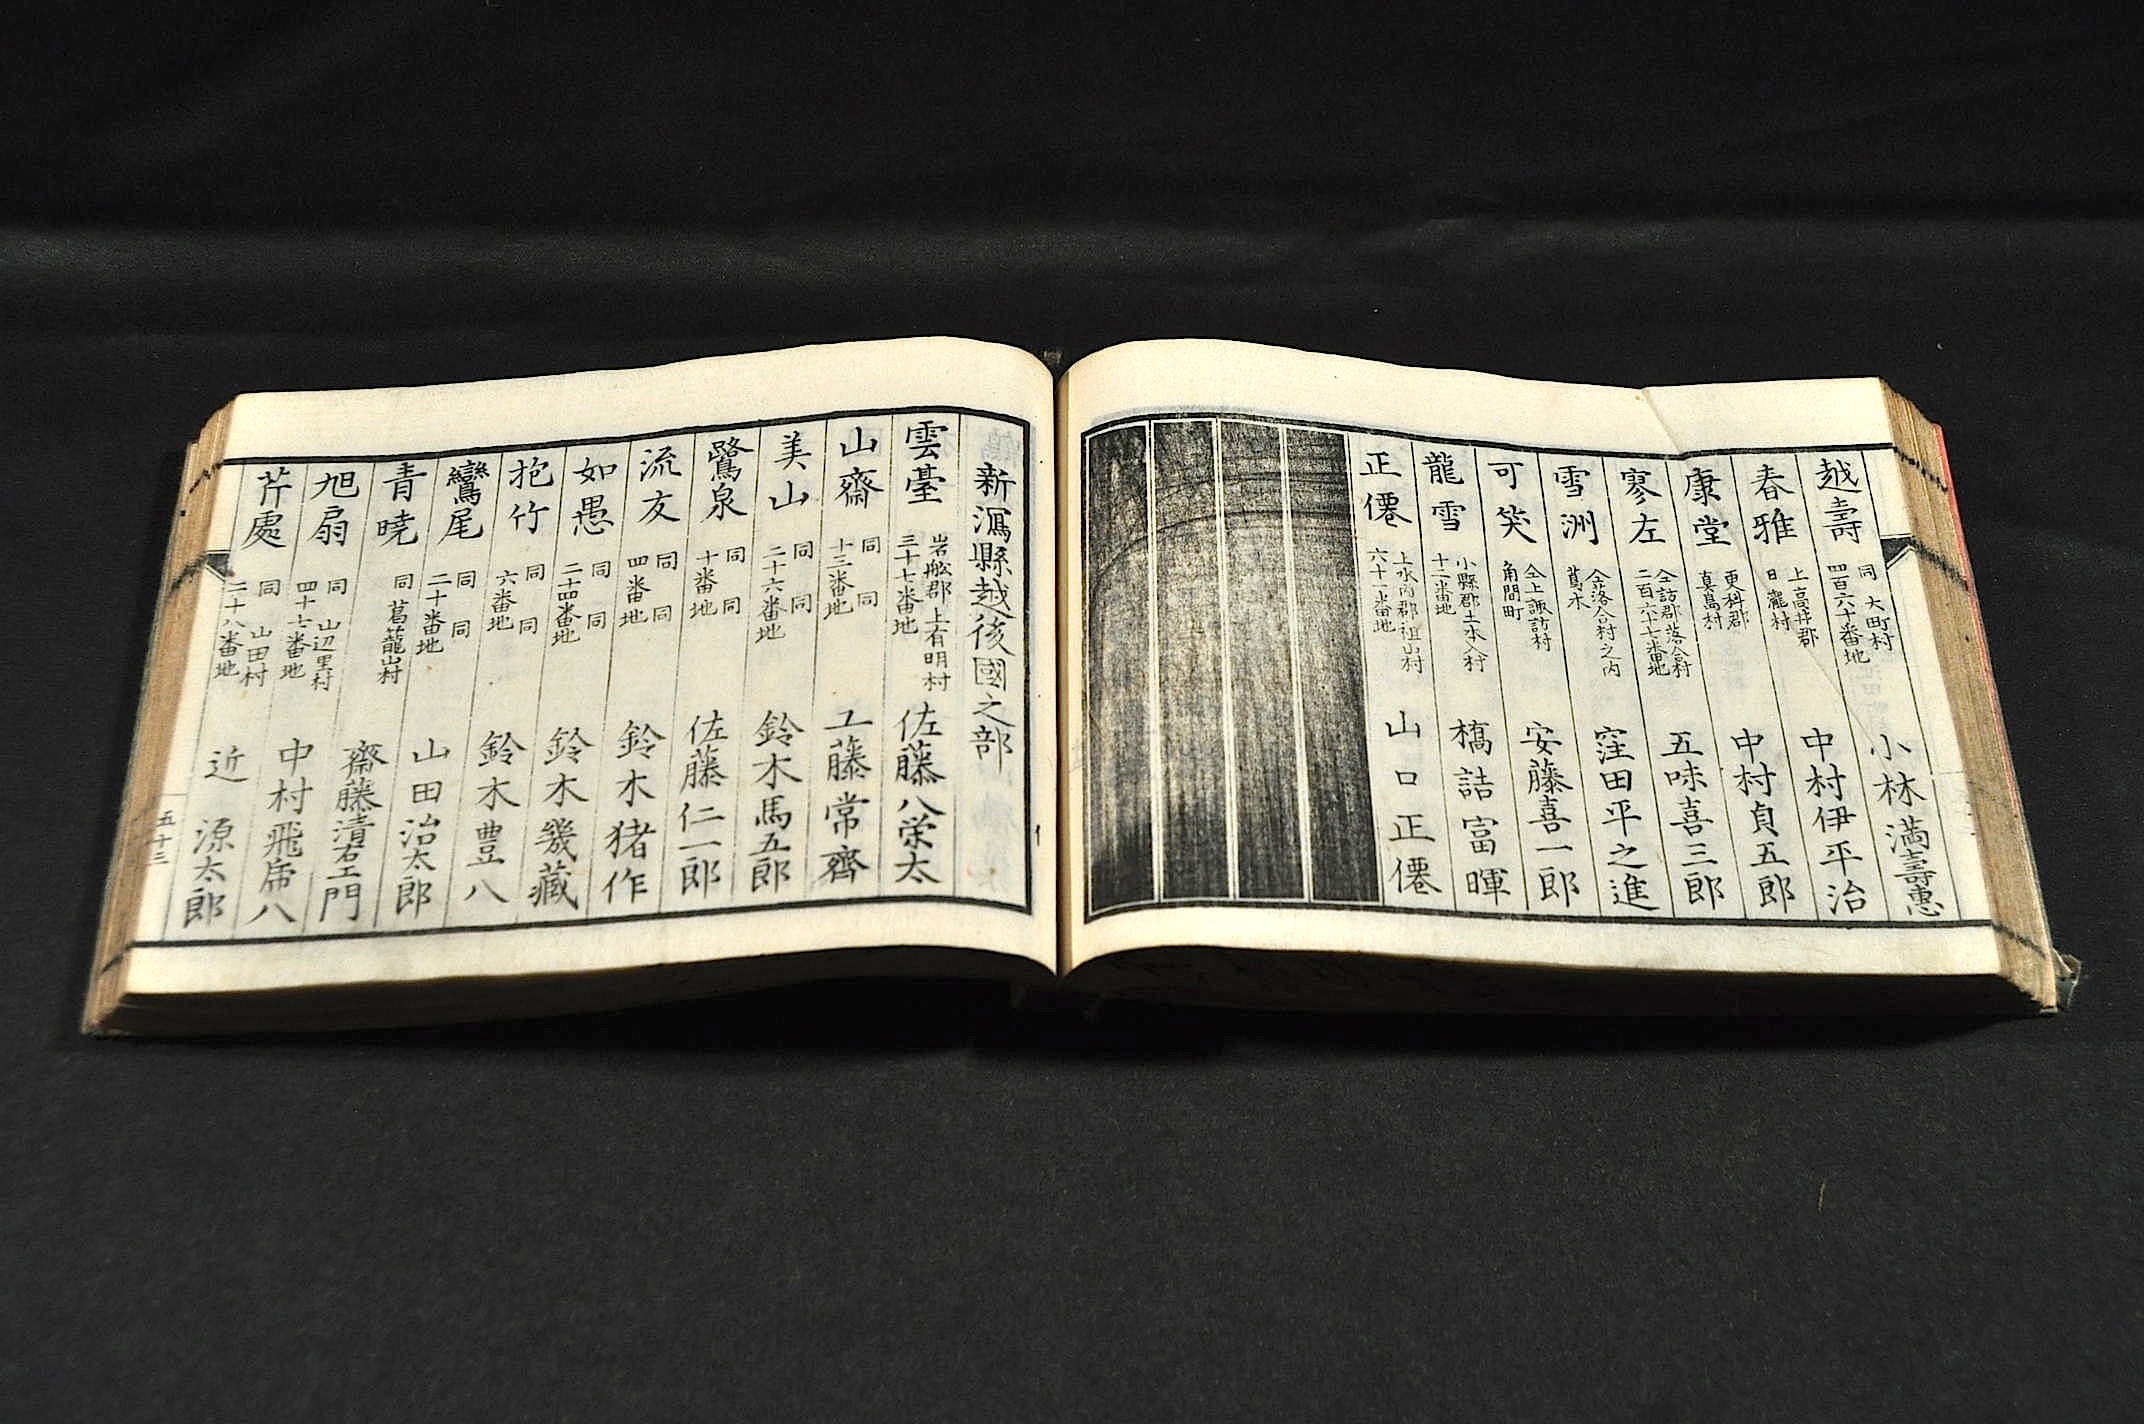 越壽 同 大町村 四百六十番地 小林満壽惠
春雅 上高井郡 日瀧村 中村伊平治
康堂 更科郡 真島村 中村貞五郎
寥左 仝訪郡落合村 二百六十七番地 五味喜三郎
雪洲 仝落合村之内 蔦木 窪田平之進
可笑 仝上諏訪村 角間町 安藤喜一郎
龍雪 小縣郡土水入村 十二番地 橋詰富暉
正僊 上水内郡祖山村 六十一番地 山口正僊
新潟縣越後國之部
雲臺 岩舩郡上有明村 三十七番地 佐藤八栄太
山齋 同 同 十三番地 工藤常齊
美山 同 同 二十六番地 鈴木馬五郎
鷺泉 同 同 十番地 佐藤仁一郎
流友 同 同 四番地 鈴木猪作
如愚 同 同 二十四番地 鈴木幾藏
抱竹 同 同 六番地 鈴木豊八
鸞尾 同 同 二十番地 山田治太郎
青暁 同 葛籠山村 齋藤清右エ門
旭扇 同 山辺里村 四十七番地 中村飛席八
芹處 同 山田村 二十八番地 近 源太郎
五十三